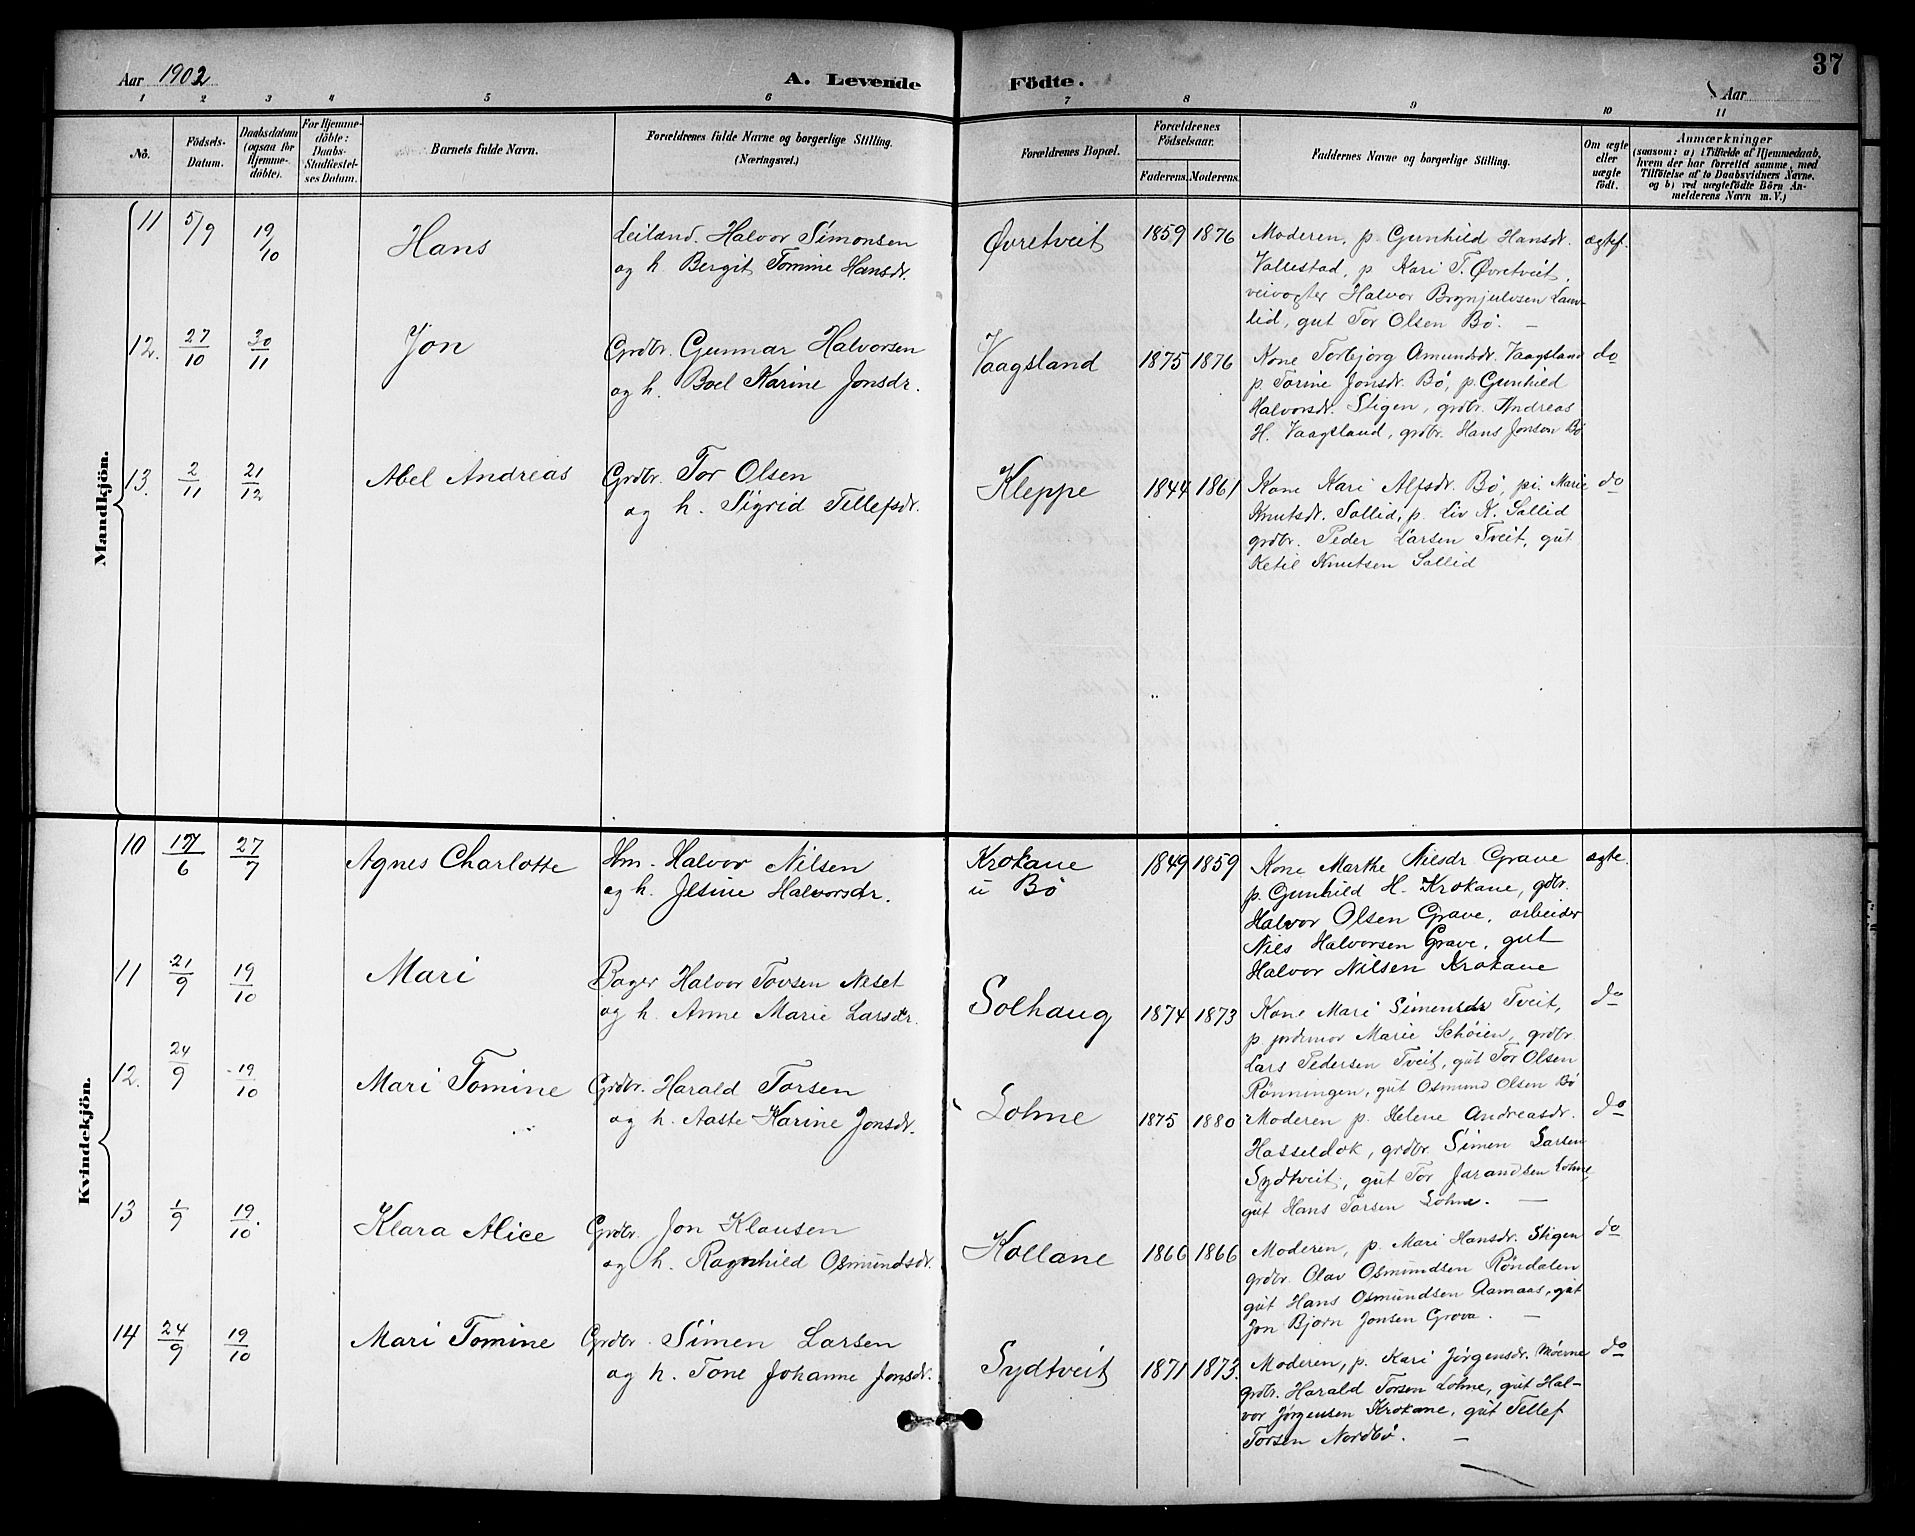 Aar 1902
A. Levende Födte.
Aar
37
1 2 3 4 5 6 7 8 9 10 11
No.
Födsels-
Datum.
Daabsdatum
(ogsaa for
Hjemme-
döbte).
For Hjemme-
döbte:
Daabs-
Stadfæstel-
ses Datum.
Barnets fulde Navn.
Forældrenes fulde Navne og borgerlige Stilling.
(Næringsvei.)
Forældrenes Bopæl.
Forældrenes
Födselsaar.
Faderens. Moderens.
Faddernes Navne og borgerlige Stilling.
Om ægte
eller
uægte
födt.
Anmærkninger
(saasom: a) i Tilfælde af Hjemmedaab,
hvem der har forrettet samme, med
Tilföielse af to Daabsvidners Navne.
og b) ved uægtefödte Börn An-
melderens Navn m. V.)
Mandkjön.
11 5/9 19/10 Hans
Leiland. Halvor Simonsen
og h. Bergit Tomine Hansdr.
Øvretveit 1859 1876
Moderen, p. Gunhild Hansdr. ægtef.
Vallestad, p. Kari T. Øvretveit,
veivogter Halvor Brynjulvsen Lauv-
lid, gut Tor Olsen Bö. —
12. 27/10 30/11 Jon
Grdbr. Gunnar Halvorsen
og h. Boel Karine Jonsdr.
Vaagsland 1875 1876
Kone Torbjorg Amundsdr. Vaagsland do
p. Torine Jonsdr. Bö, p. Gunhild
Halvorsdr. Stigen, grdbr. Andreas
H. Vaagsland, grdbr. Hans Jonson Bö
13. 2/11 21/12 Abel Andreas
Grdbr. Tor Olsen
og h. Sigrid Tellefsdr.
Kleppe 1844 1861
Kone Kari Alfsdr. Bö, pi. Marie do
Knutsdr. Sollid, p. Liv K. Sollid
grdbr. Peder Larsen Tveit, gut
Ketil Knutsen Sollid
Kvindekjön.
10 17/6 27/7 Agnes Charlotte
Hm. Halvor Nilsen
og h. Jesine Halvorsdr.
Krokane
u Bö
1849 1859
Kone Marthe Nilsdr Grave ægte.
p. Gunhild H. Krokane, gdbr.
Halvor Olsen Grave, arbeider
Nils Halvorsen Grave, gut
Halvor Nilsen Krokane
11 21/9 19/10 Mari
Bager Halvor Tovsen Neset
og h. Anne Marie Larsdr.
Solhaug 1874 1873
Kone Mari Simensdr Tveit, do
p. jordmor Marie Schöien, grdbr.
Lars Pedersen Tveit, gut Tor Olsen
Rönningen, gut Osmund Olsen Bö
12. 24/9 19/10 Mari Tomine
Grdbr. Harald Torsen
og h. Aaste Karine Jonsdr.
Lohne 1875 1880
Moderen p. Helene Andreasdr. do
Hasseldok, grdbr. Simen Larsen
Sydtveit, gut Tor Jarandsen Lohne,
gut Hans Torsen Lohne. —
13 1/9 19/10. Klara Alice
Grdbr. Jon Klausen
og h. Ragnhild Osmundsdr.
Kollane 1866 1866
Moderen, p. Mari Hansdr. Stigen do
grdbr. Olav Osmundsen Röndalen
gut Hans Osmundsen Aamaas, gut
Jon Bjorn Jonsen Grova. —
14 24/9 19/10 Mari Tomine
Grdbr. Simen Larsen
og h. Tone Johanne Jonsdr.
Sydtveit 1871 1873.
Moderen, p. Kari Jörgensdr. Moerne do
grdbr. Harald Torsen Lohne, gut Hal-
vor Jörgensen Krokane, gut Tellef
Torsen Nordbö. —